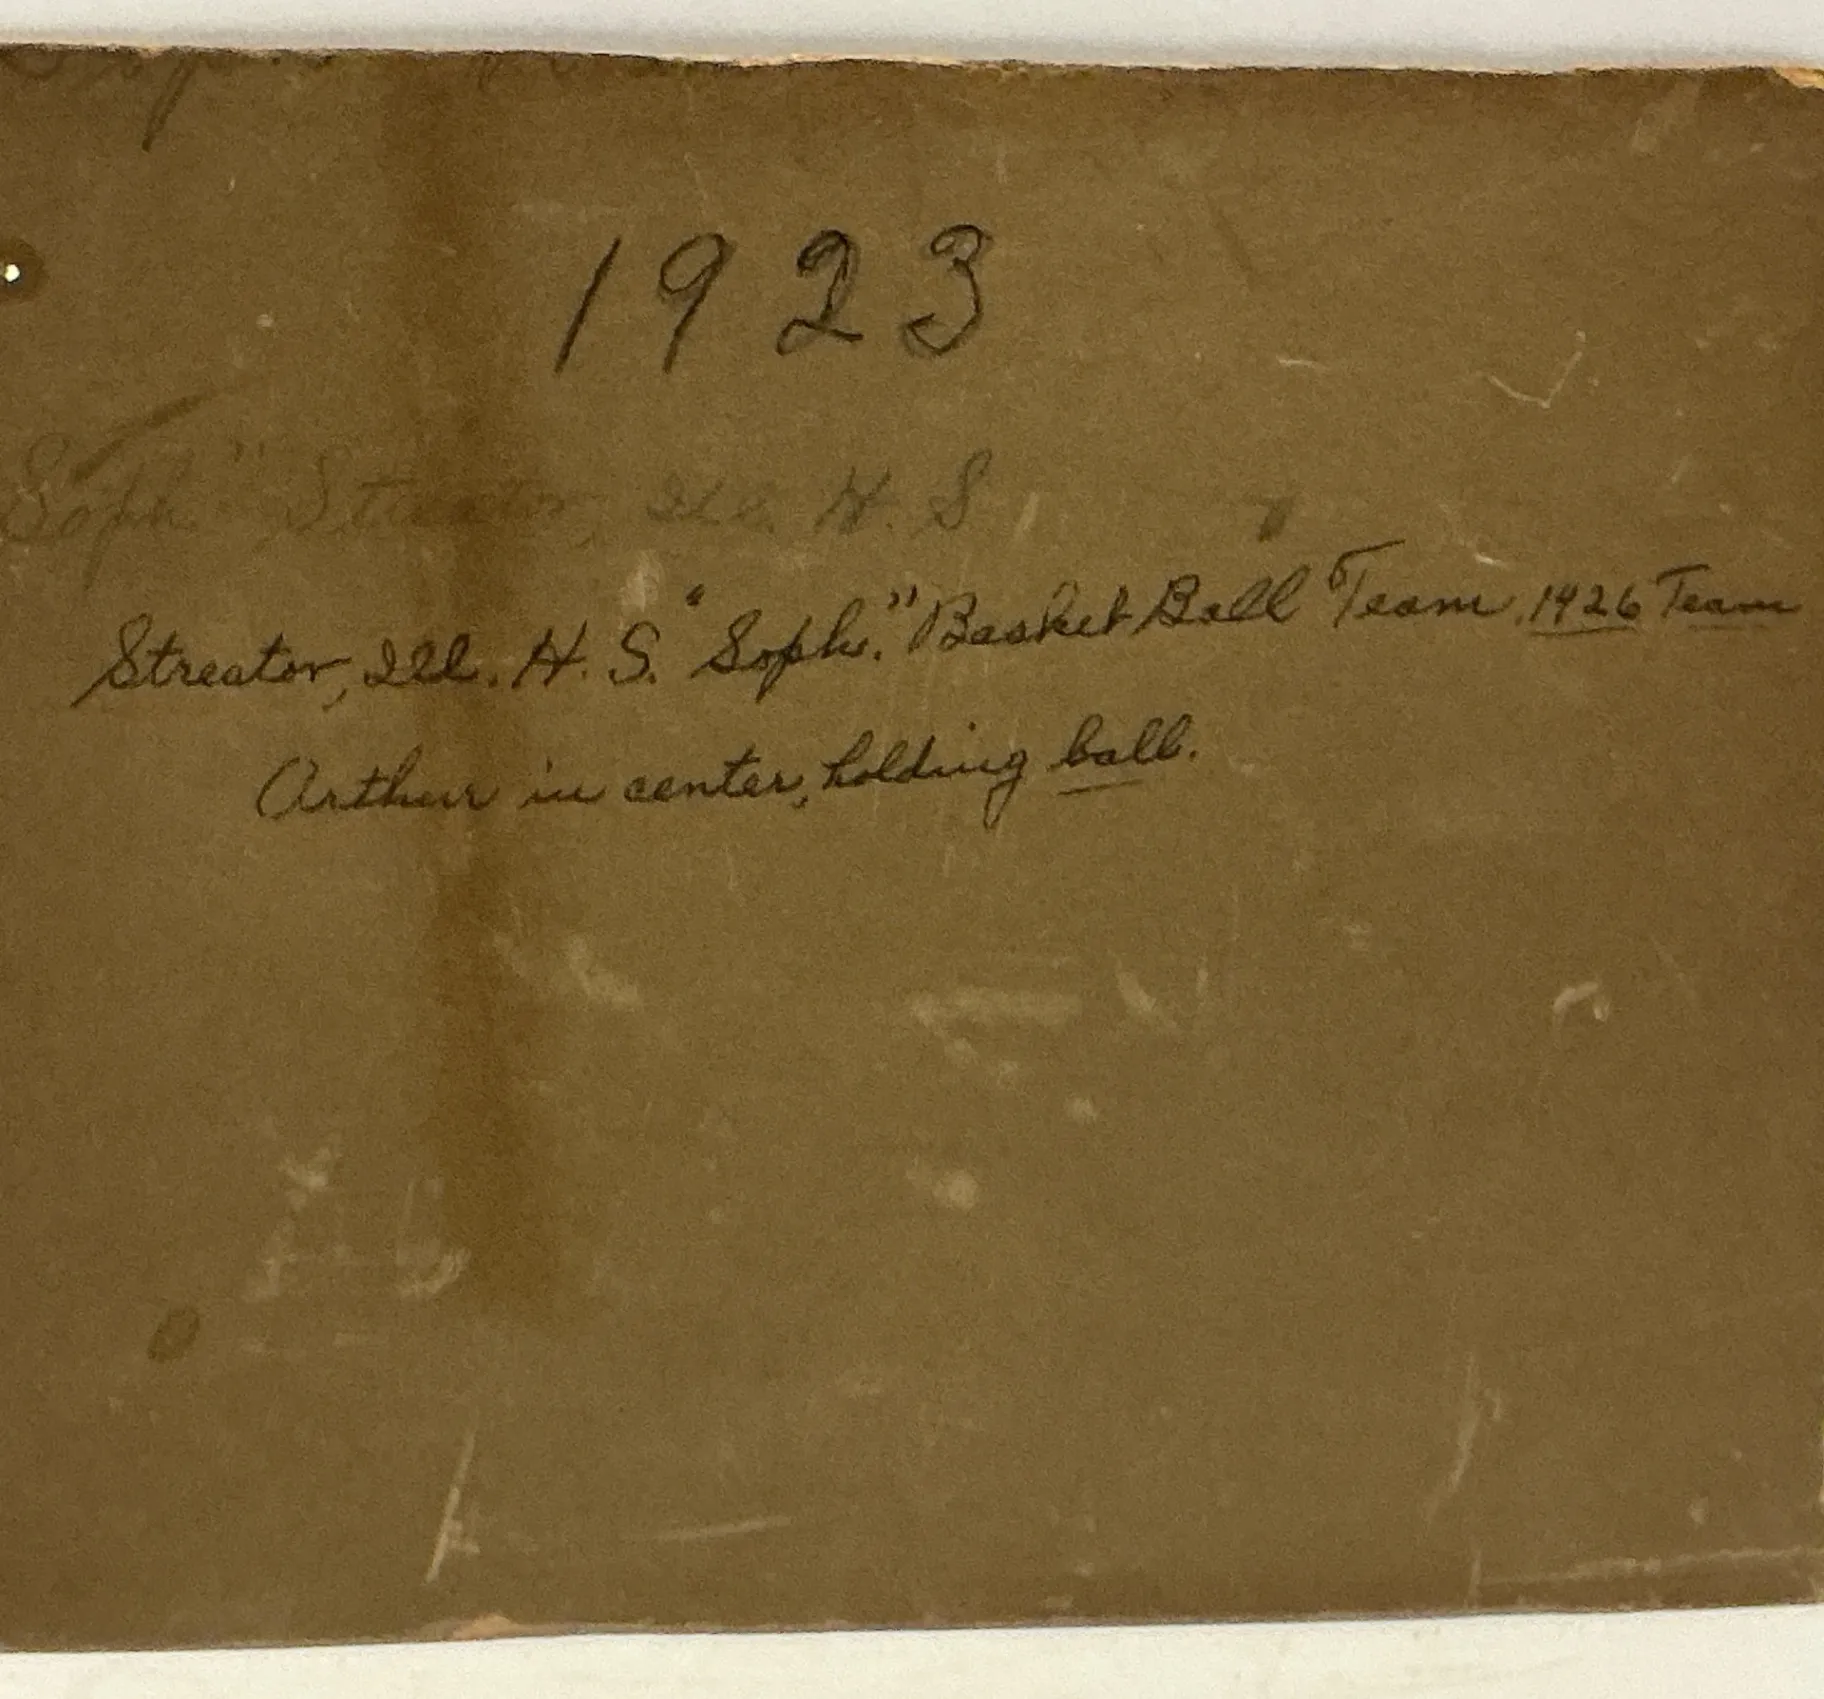 1923
Soph." Streator, Ill. H. S
Streator, Ill. H. S. "Soph." Basket Ball Team, 1926 Team
Arthur in center, holding ball.